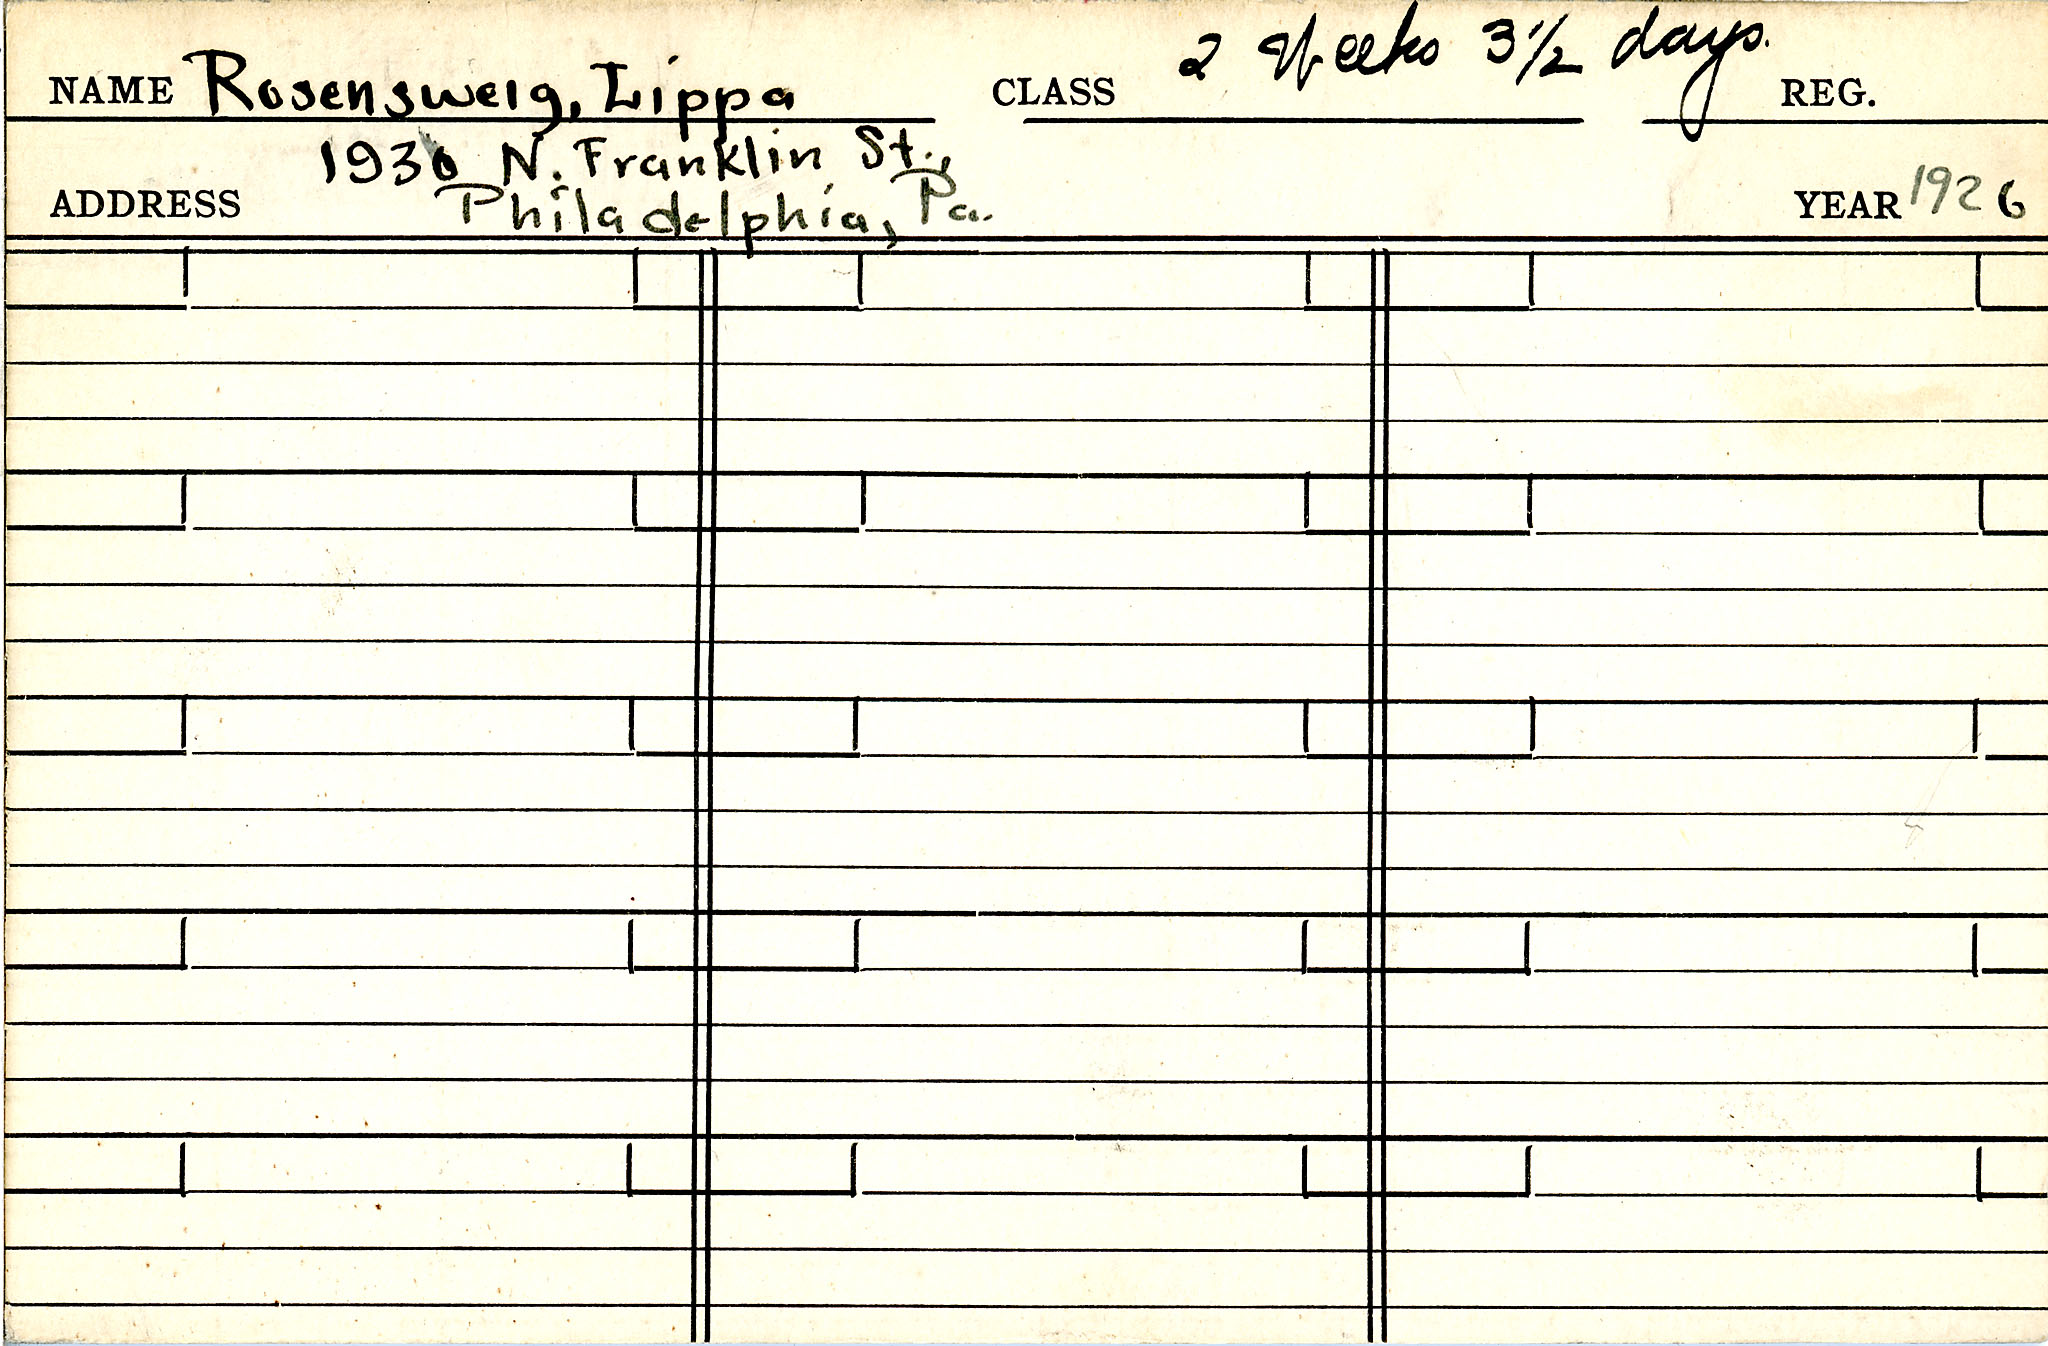 NAME Rosensweig, Lippa CLASS 2 Weeks 3½ days. REG.
1930 N. Franklin St.,
ADDRESS Philadelphia, Pa. YEAR 1926